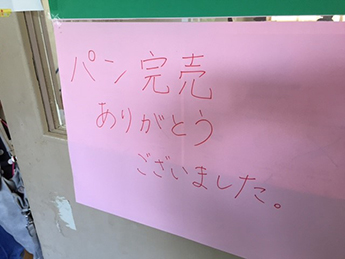 パン完売
ありがとう
ございました。